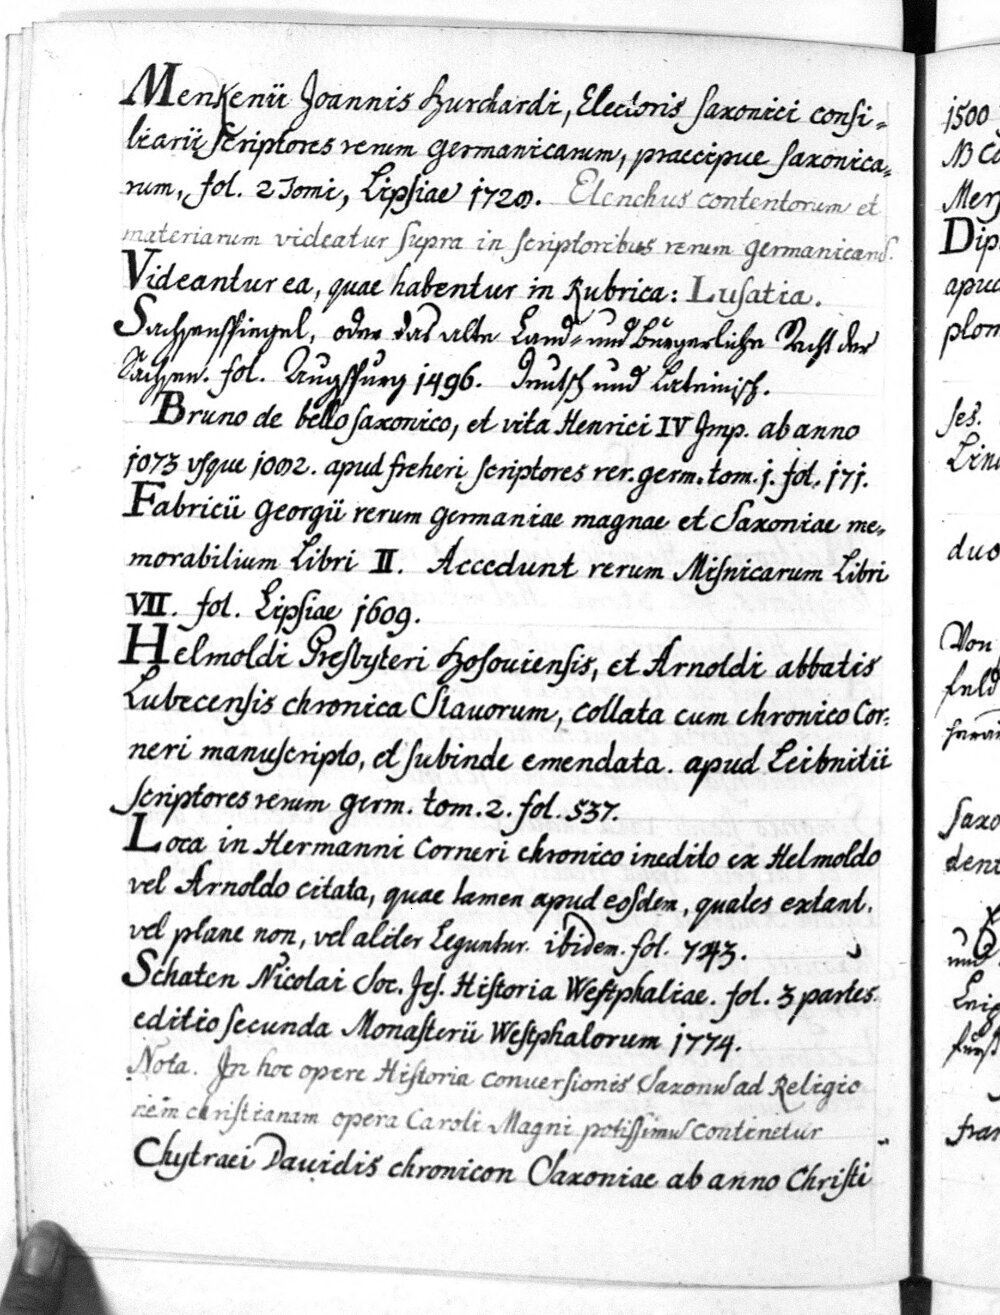 Menkenii Joannis Burchardi, Electoris Saxonici consi=
liarii Scriptores rerum Germanicarum, praecipue Saxonica=
rum, fol. 2 Tomi, Lipsiae 1728. Elenchus contentorum et
materiarum videatur supra in scriptoribus rerum Germanicar.
Videantur ea, quae habentur in Rubrica: Lusatia.
Sachsenspiegel, oder das alte Land= und Bürgerliche Recht der
Sachsen. fol. Augspurg 1496. Teutsch und Lateinisch.
Bruno de bello Saxonico, et vita Henrici IV Imp. ab anno
1073 usque 1082. apud Freheri Scriptores rer. germ. tom. 1. fol. 171.
Fabricii Georgii rerum Germaniae magnae et Saxoniae me=
morabilium Libri II. Accedunt rerum Misnicarum Libri
VII. fol. Lipsiae 1609.
Helmoldi Presbyteri Bosoviensis, et Arnoldi abbatis
Lubecensis chronica Slauorum, collata cum chronico Cor=
neri manuscripto, et subinde emendata. apud Leibnitii
scriptores rerum germ. tom. 2. fol. 537.
Loca in Hermanni Corneri chronico inedito ex Helmoldo
vel Arnoldo citata, quae tamen apud eosdem, quales extant,
vel plane non, vel aliter leguntur. ibidem. fol. 743.
Schaten Nicolai Soc. Jes. Historia Westphaliae. fol. 3 partes.
editio secunda Monasterii Westphalorum 1774.
Nota. In hoc opere Historia conversionis Saxonum ad Religio
nem christianam opera Caroli Magni potissimum continetur
Chytraei Davidis chronicon Saxoniae ab anno Christi
1500
NB
Dip
apud
plom
ses.
duo
Von
feld
Saxo
und
Leip
fran